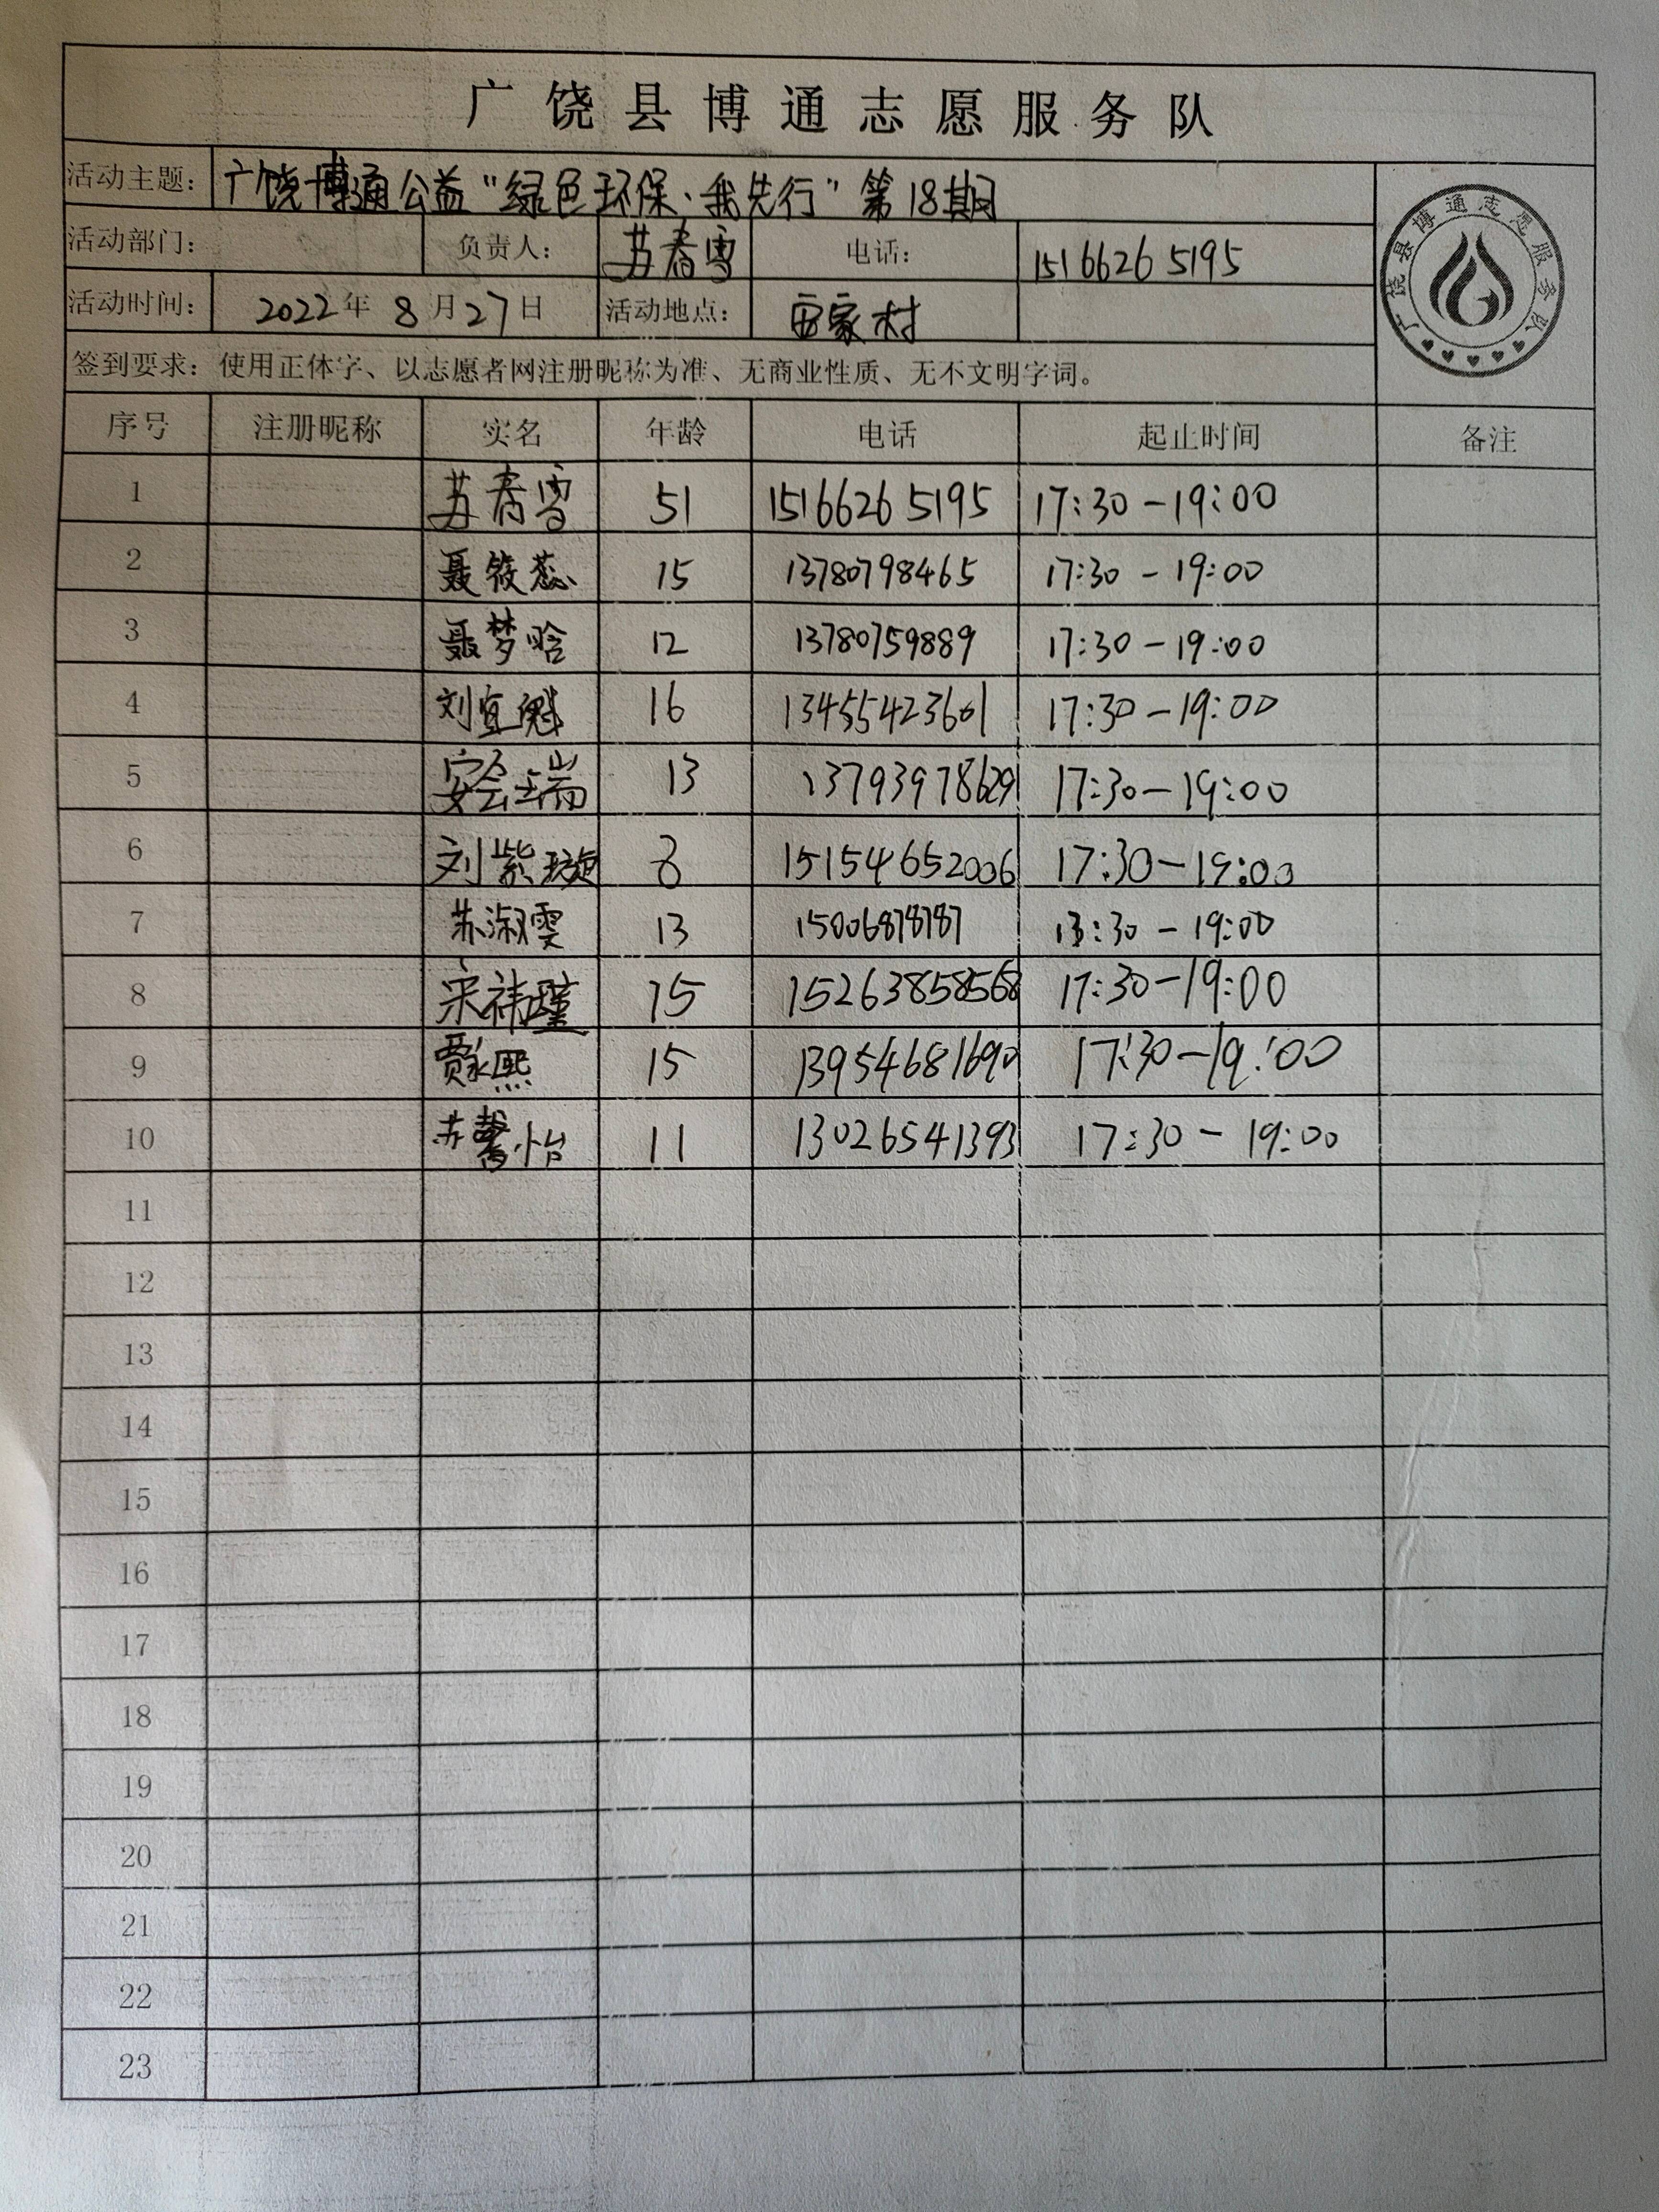 广饶县博通志愿服务队
活动主题： 广饶博通公益“绿色环保，我先行”第18期
广饶县博通志愿服务队
活动部门： 负责人： 苏春雪 电话： 15166265195
活动时间： 2022年8月27日 活动地点： 西家村
签到要求：使用正体字、以志愿者网注册昵称为准、无商业性质、无不文明字词。
序号 注册昵称 实名 年龄 电话 起止时间 备注
1 苏春雪 51 15166265195 17:30-19:00
2 聂筱蕊 15 13780798465 17:30-19:00
3 聂梦晗 12 13780759889 17:30-19:00
4 刘宜魁 16 13455423601 17:30-19:00
5 安会瑞 13 13793978629 17:30-19:00
6 刘紫璇 8 15154652006 17:30-19:00
7 苏淑雯 13 15006878787 13:30-19:00
8 宋祎瑾 15 15263858568 17:30-19:00
9 贾永熙 15 13954681690 17:30-19:00
10 苏馨怡 11 13026541393 17:30-19:00
11
12
13
14
15
16
17
18
19
20
21
22
23